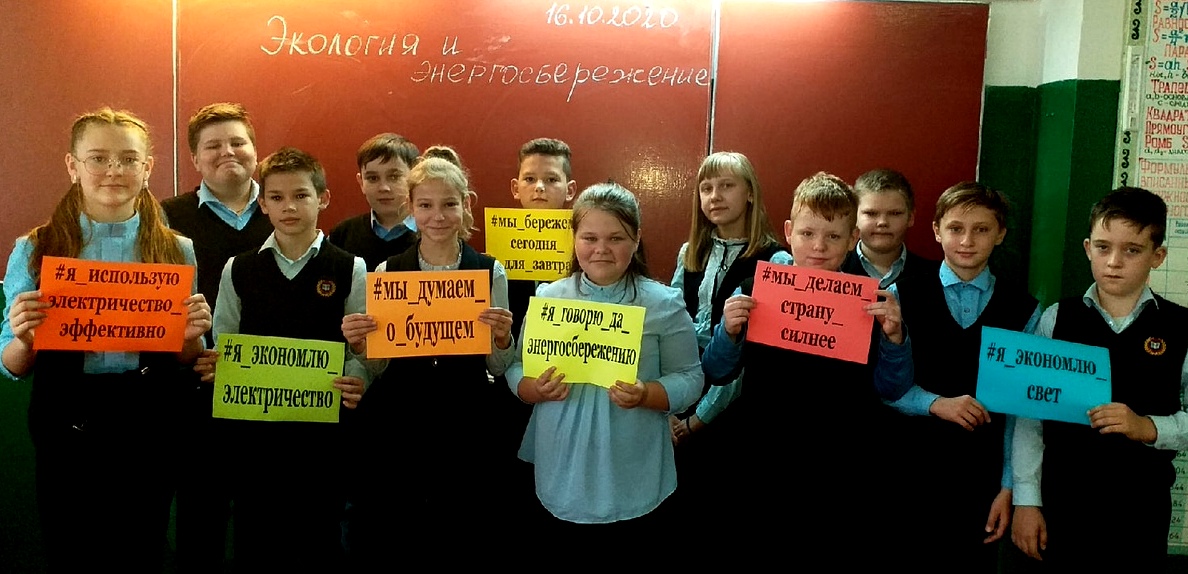 16.10.2020
Экология и
энергосбережение
#я_использую
электричество_
эффективно
#я_экономлю_
электричество
#мы_думаем_
о_будущем
#мы_бережем
сегодня_
для_завтра
#я_говорю_да_
энергосбережению
#мы_делаем_
страну_
силнее
#я_экономлю_
свет